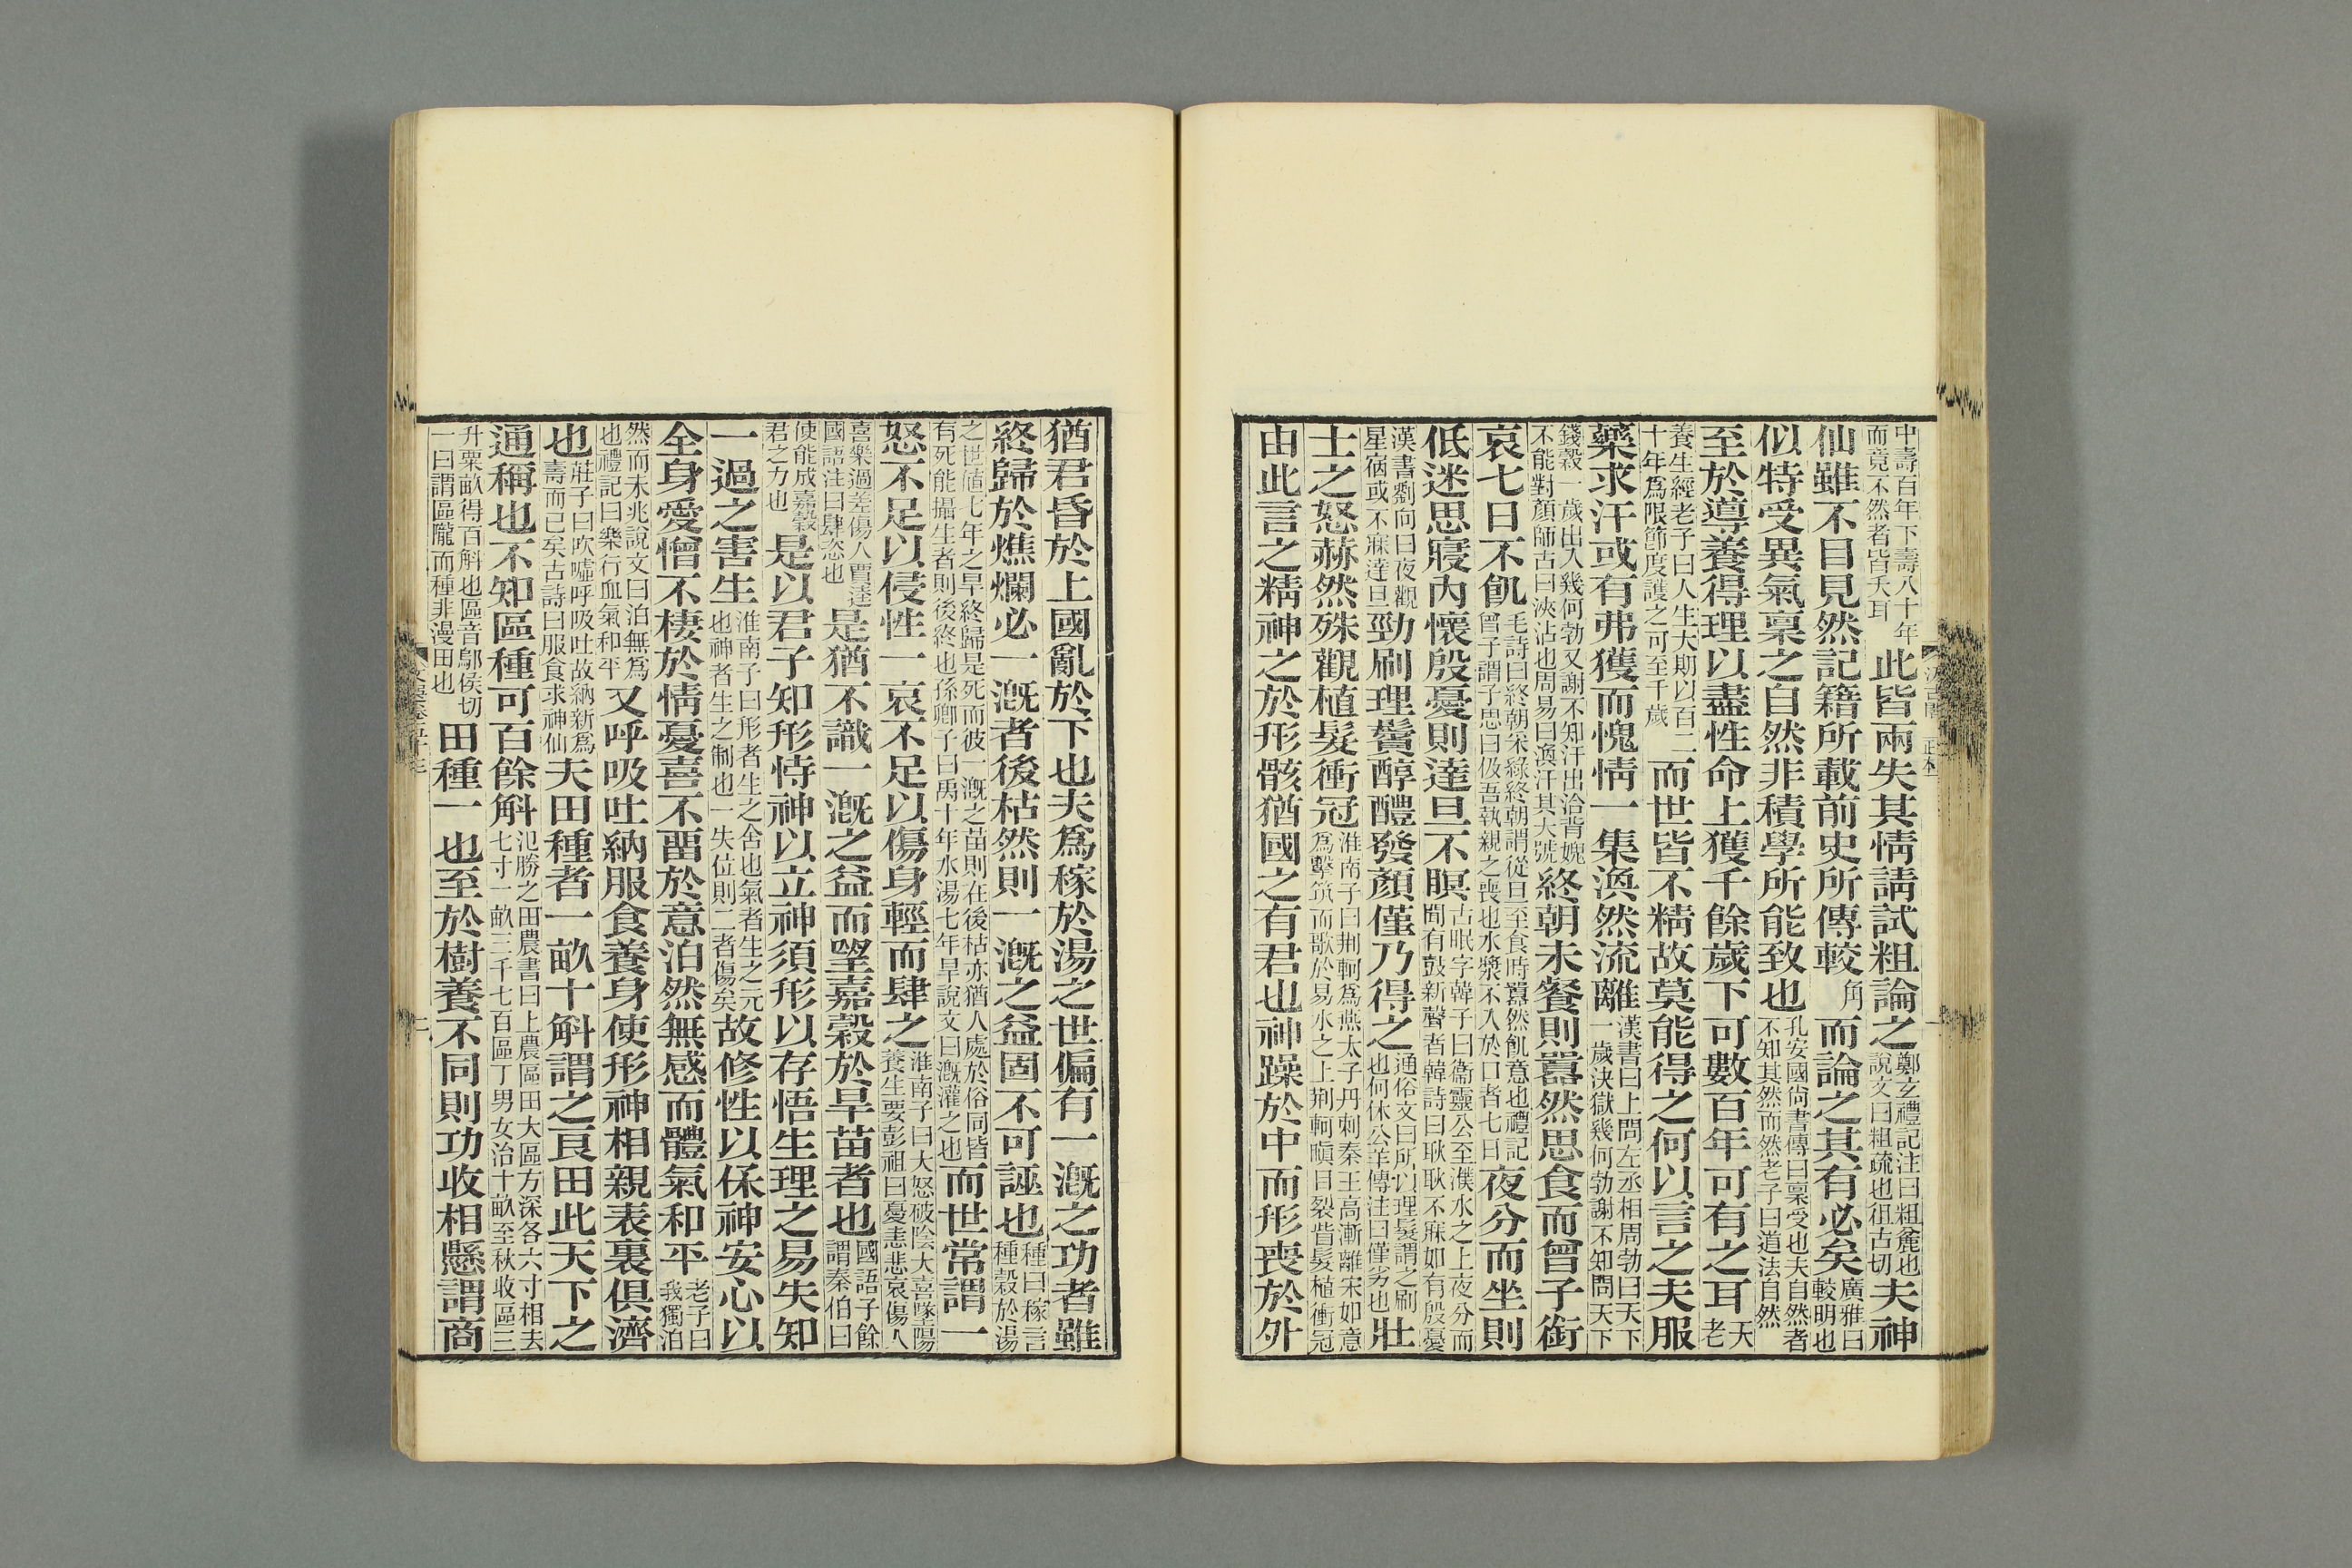 中壽百年下壽八十年而竟不然者皆夭耳此皆兩失其情請試粗論之鄭玄禮記注曰粗麄也說文曰粗疏也徂古切夫神
仙雖不目見然記籍所載前史所傳較角而論之其有必矣廣雅曰較明也
似特受異氣稟之自然非積學所能致也孔安國尙書傳曰稟受也夫自然者不知其然而然老子曰道法自然
至於導養得理以盡性命上獲千餘歲下可數百年可有之耳天老
養生經老子曰人生大期以百二十年爲限節度護之可至千歲而世皆不精故莫能得之何以言之夫服
藥求汗或有弗獲而愧情一集渙然流離漢書曰上問左丞相周勃曰天下一歲決獄幾何勃謝不知問天下
錢穀一歲出入幾何勃又謝不知汗出洽背媿不能對顏師古曰浹沾也周易曰渙汗其大號終朝未餐則囂然思食而曾子銜
哀七日不飢毛詩曰終朝采綠終朝謂從旦至食時囂然飢意也禮記曾子謂子思曰伋吾執親之喪也水漿不入於口者七日夜分而坐則
低迷思寢內懷殷憂則達旦不瞑古眠字韓子曰衞靈公至濮水之上夜分而聞有鼓新聲者韓詩曰耿耿不寐如有殷憂
漢書劉向曰夜觀星宿或不寐達旦勁刷理鬢醇醴發顏僅乃得之通俗文曰所以理髮謂之刷也何休公羊傳注曰僅劣也壯
士之怒赫然殊觀植髮衝冠淮南子曰荆軻爲燕太子丹刺秦王高漸離宋如意爲擊筑而歌於易水之上荆軻瞋目裂眥髮植衝冠
由此言之精神之於形骸猶國之有君也神躁於中而形喪於外
猶君昏於上國亂於下也夫爲稼於湯之世偏有一漑之功者雖
終歸於燋爛必一漑者後枯然則一漑之益固不可誣也種曰稼言種穀於湯
之世值七年之旱終歸是死而彼一漑之苗則在後枯亦猶人處於俗同皆有死能攝生者則後終也孫卿子曰禹十年水湯七年旱說文曰漑灌之也而世常謂一
怒不足以侵性一哀不足以傷身輕而肆之淮南子曰大怒破陰大喜墜陽養生要彭祖曰憂恚悲哀傷人
喜樂過差傷人賈逵國語注曰肆恣也是猶不識一漑之益而望嘉穀於旱苗者也國語子餘謂秦伯曰
使能成嘉穀君之力也是以君子知形恃神以立神須形以存悟生理之易失知
一過之害生淮南子曰形者生之舍也氣者生之元也神者生之制也一失位則二者傷矣故修性以保神安心以
全身愛憎不棲於情憂喜不畱於意泊然無感而體氣和平老子曰我獨泊
然而未兆說文曰泊無爲也禮記曰樂行血氣和平又呼吸吐納服食養身使形神相親表裏俱濟
也莊子曰吹噓呼吸吐故納新爲壽而已矣古詩曰服食求神仙夫田種者一畝十斛謂之良田此天下之
通稱也不知區種可百餘斛氾勝之田農書曰上農區田大區方深各六寸相去七寸一畝三千七百區丁男女治十畝至秋收區三
升粟畝得百斛也區音鄔侯切一曰謂區隴而種非漫田也田種一也至於樹養不同則功收相懸謂商